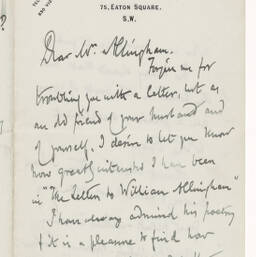 75, EATON SQUARE,
S.W.
Dear Mrs Allingham.
Forgive me for
troubling you with a letter, but as
an old friend of your husband and
of yourself, I desire to let you know
how greatly interested I have been
in "The Letters to William Allingham"
I have always admired his poetry
& it is a pleasure to find how